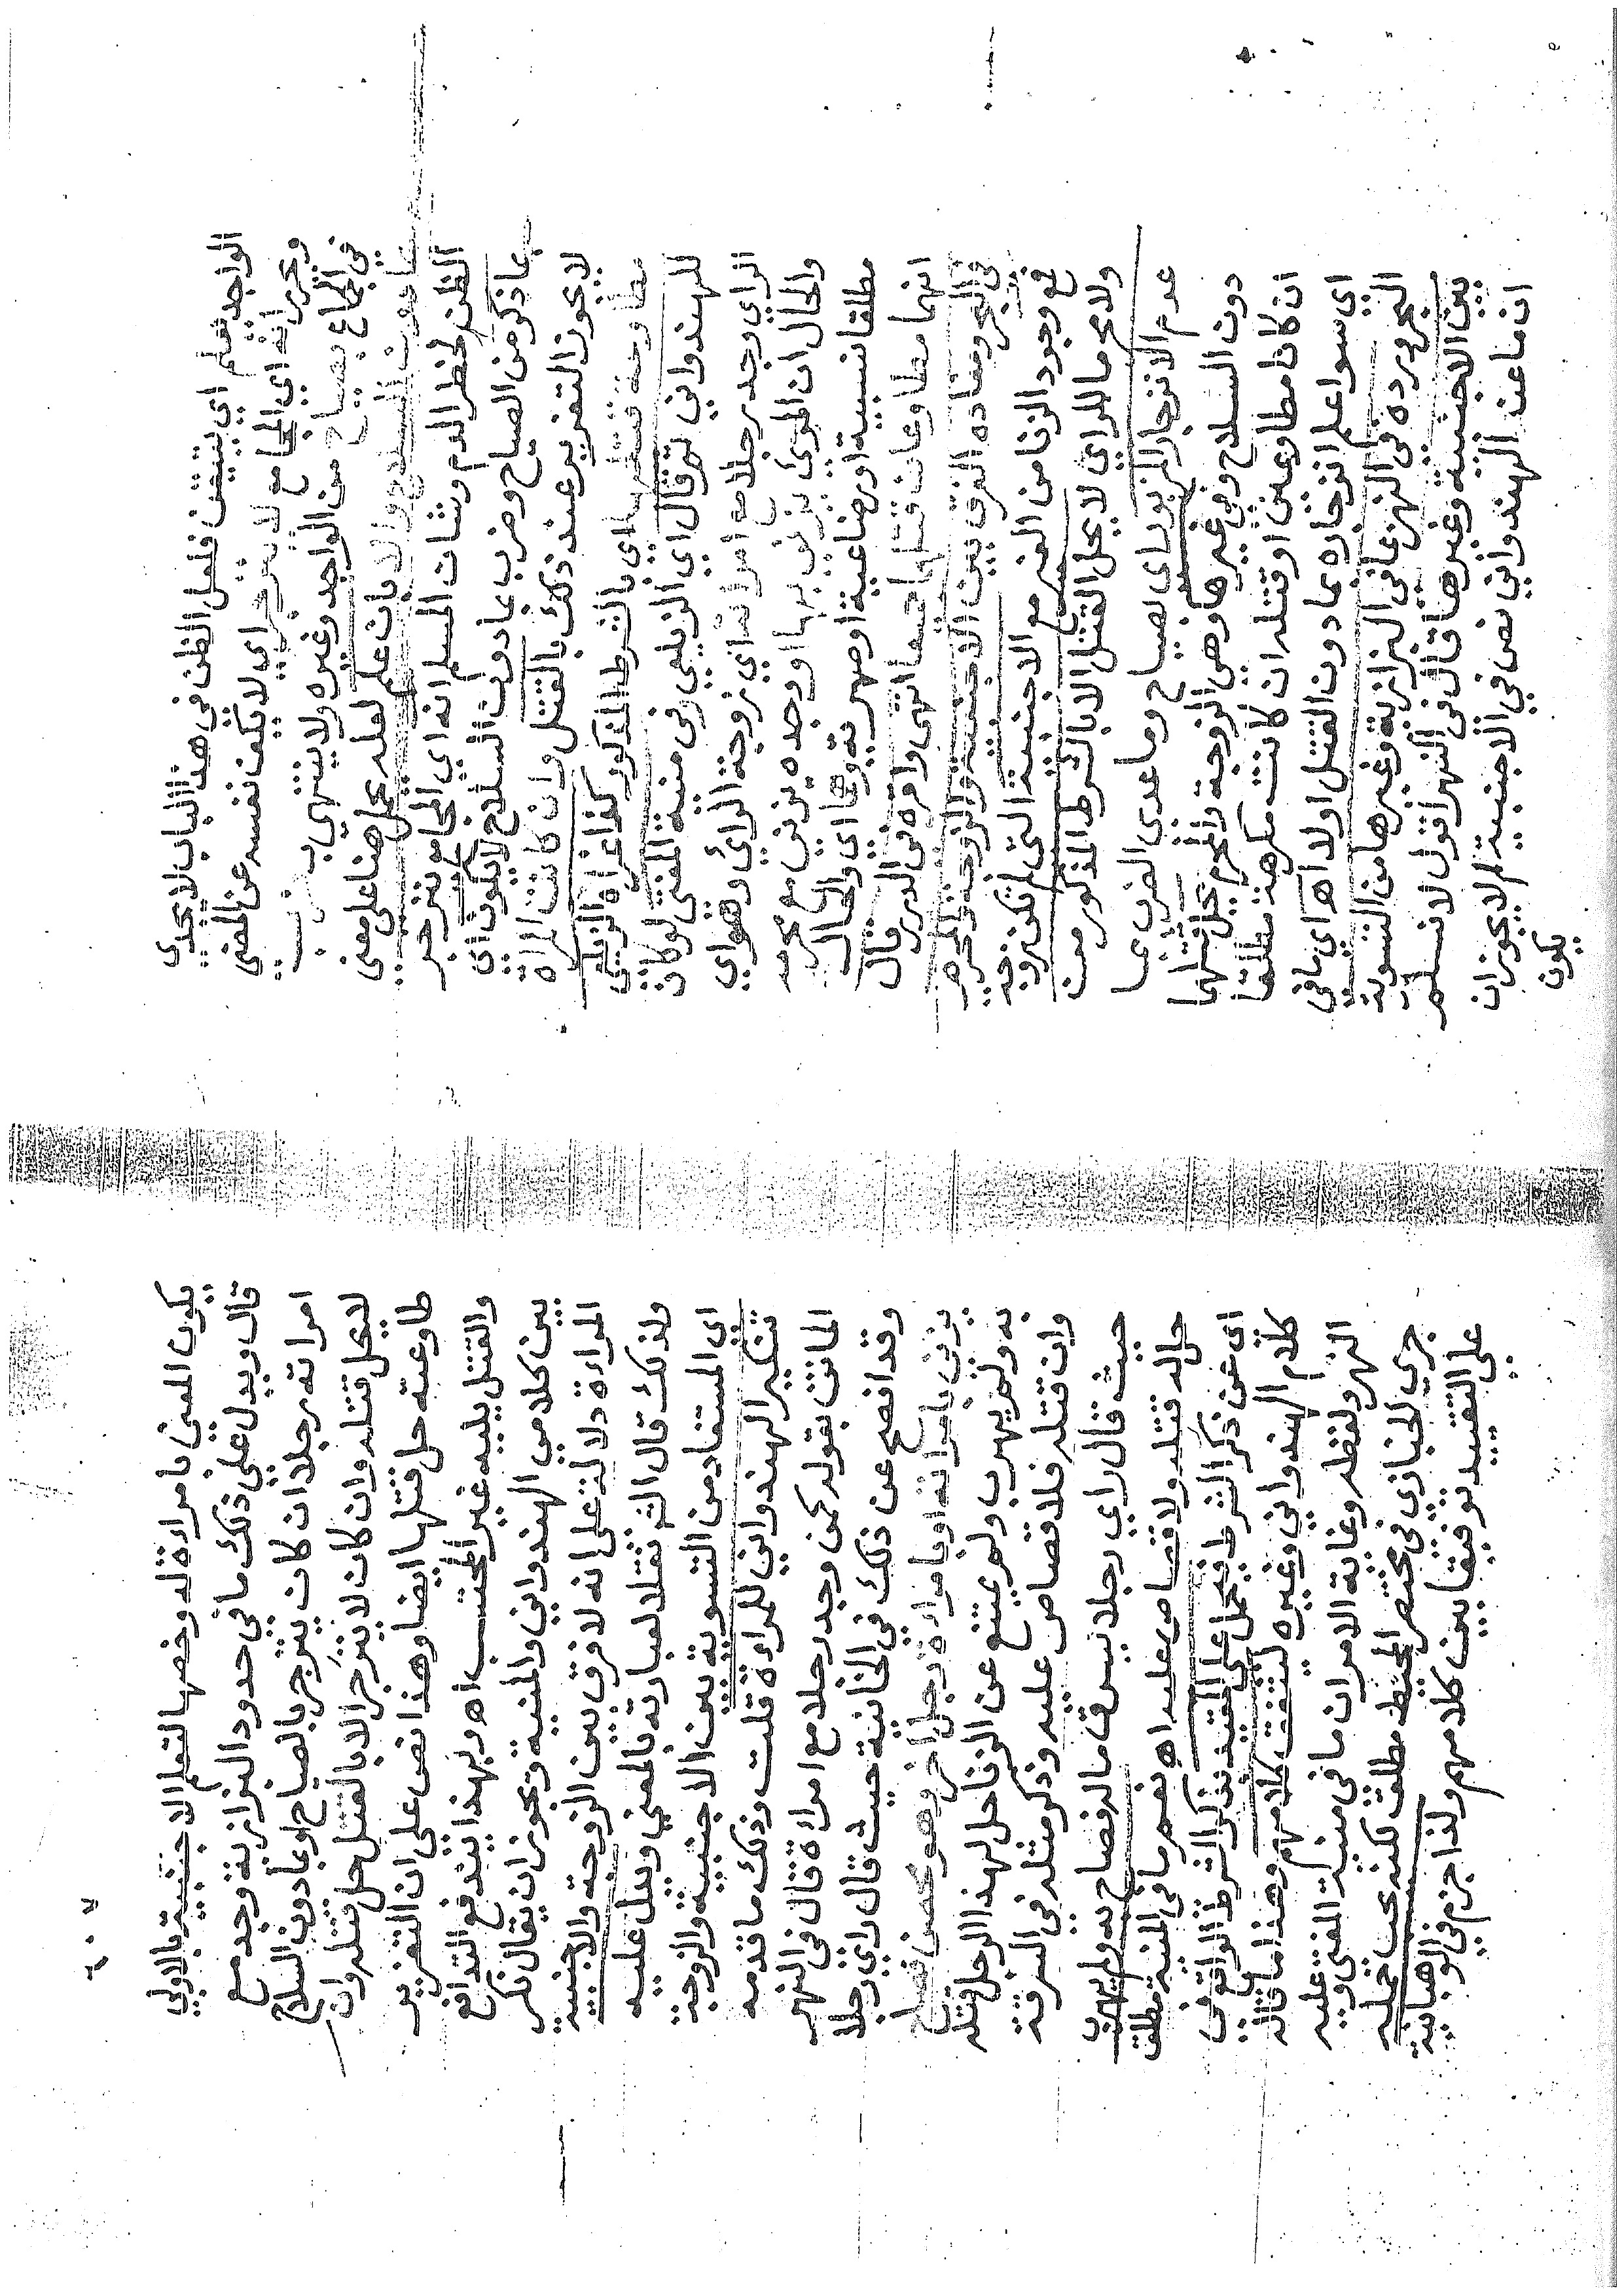 الواجد فلم اي يتيقن فلعل الظن في هذا الباب لا يجدي
وعرف انه اي المجامع لا ينزجر اي لا يكف نفسه عن المضي
في الجماع بصياح من الواجد وغيره ولا ينتهي ب
بما دون السلاح والا بان علم لعله يحمل هنا على معنى
الظن لخطر الدم وشان المسلم انه اي المجامع ينزجر
بما ذكر من الصياح وضرب بما دون السلاح لا يكون اي
لا يجوز التعزير عند ذلك بالقتل وان كانت المراة
مطاوعة قتلهما اي بالشرط المذكور كذا عزاه الزيلعي
للهندواني ثم قال اي الزيلعي وفي منية المفتي لو كان
الراي وجد رجلا مع امراته اي زوجة الرائ وهو اي
والحال ان المرئ يزني بها او وجده يزني مع محرمه
مطلقا نسبية او رضاعية او صهرية وهما اي والحال
انهما مطاوعان قتلهما جميعا انتهى واقره في الدرر قال
في البحر ومفاده الفرق بين الاجنبية والزوجة والمحرم
فمع وجود الزنا من الغير مع الاجنبية التي لم تكن زوجة
ولا محرما للراي لا يحل القتل الا بالشرط المذكور من
عدم الانزجار المزبور اي بصياح وما عدى الضرب بما
دون السلاح وفي غيرها وهي الزوجة والمحرم يحل قتلهما
ان كانا مطاوعين او قتله ان كانت مكرهة مطلقا
اي سوا علم انزجاره بما دون القتل اولا اه اي ما في
البحر ورده في النهر بما في البزازية وغيرها من التسوية
بين الاجنبية وغيرها قال في النهر اقول لا نسلم
ان ما عند الهندواني نص في الاجنبية لم لا يجوز ان
يكون
يكون المعنى بامراءة له وخصها لتعلم الاجنبية بالاولي
قال ويدل على ذلك ما في حدود البزازية وجد مع
امراته رجلا ان كان ينزجر بالصياح او بما دون السلاح
لا يحل قتله وان كان لا ينزجر الا بالقتل حل قتله وان
طاوعته حل قتلها ايضا وهذا نص على ان التعزير
والقتل يليه غير المحتسب اه وبهذا يندفع التدافع
بين كلامي الهندواني والمنية ويجوز ان يقال نكر
المراءة دلالة على انه لا فرق بين الزوجة والاجنبية
ولذلك قال الشر نقلا لعبارته بالمعني ويدل عليه
اي المستفاد من التسوية بين الاجنبية والزوجة
تنكير الهندواني للمراءة قلت وذلك ما قدمه
الماتن بقوله كمن وجد رجلا مع امراءة قال في النهر
وقد افصح عن ذلك في الخانية حيث قال راي رجلا
يزني بامراته او بامراءة رجل اخر وهو محصن فصاح
به ولم يهرب ولم يمتنع عن الزنا حل لهذا الرجل قتله
وان قتله فلا قصاص عليه وذكر مثله في السرقة
حيث قال راي رجلا يسرق ماله فصاح به ولم يهرب
حل له قتله ولا قصاص عليه اه نعم ما في المنية مطلق
اي عن ذكر الشرط فيحمل على المقيد بذكر الشرط الواقع في
كلام الهندواني وغيره ليتفق كلامهم وهذا ما قاله
النهر ولفظه وغاية الامر ان ما في منية المفتي
جري الخبازي في مختصر المحيط مطلق لكنه يجب حمله
على التقييد توفيقا بين كلامهم ولذا جزم في الوهبانية
علي